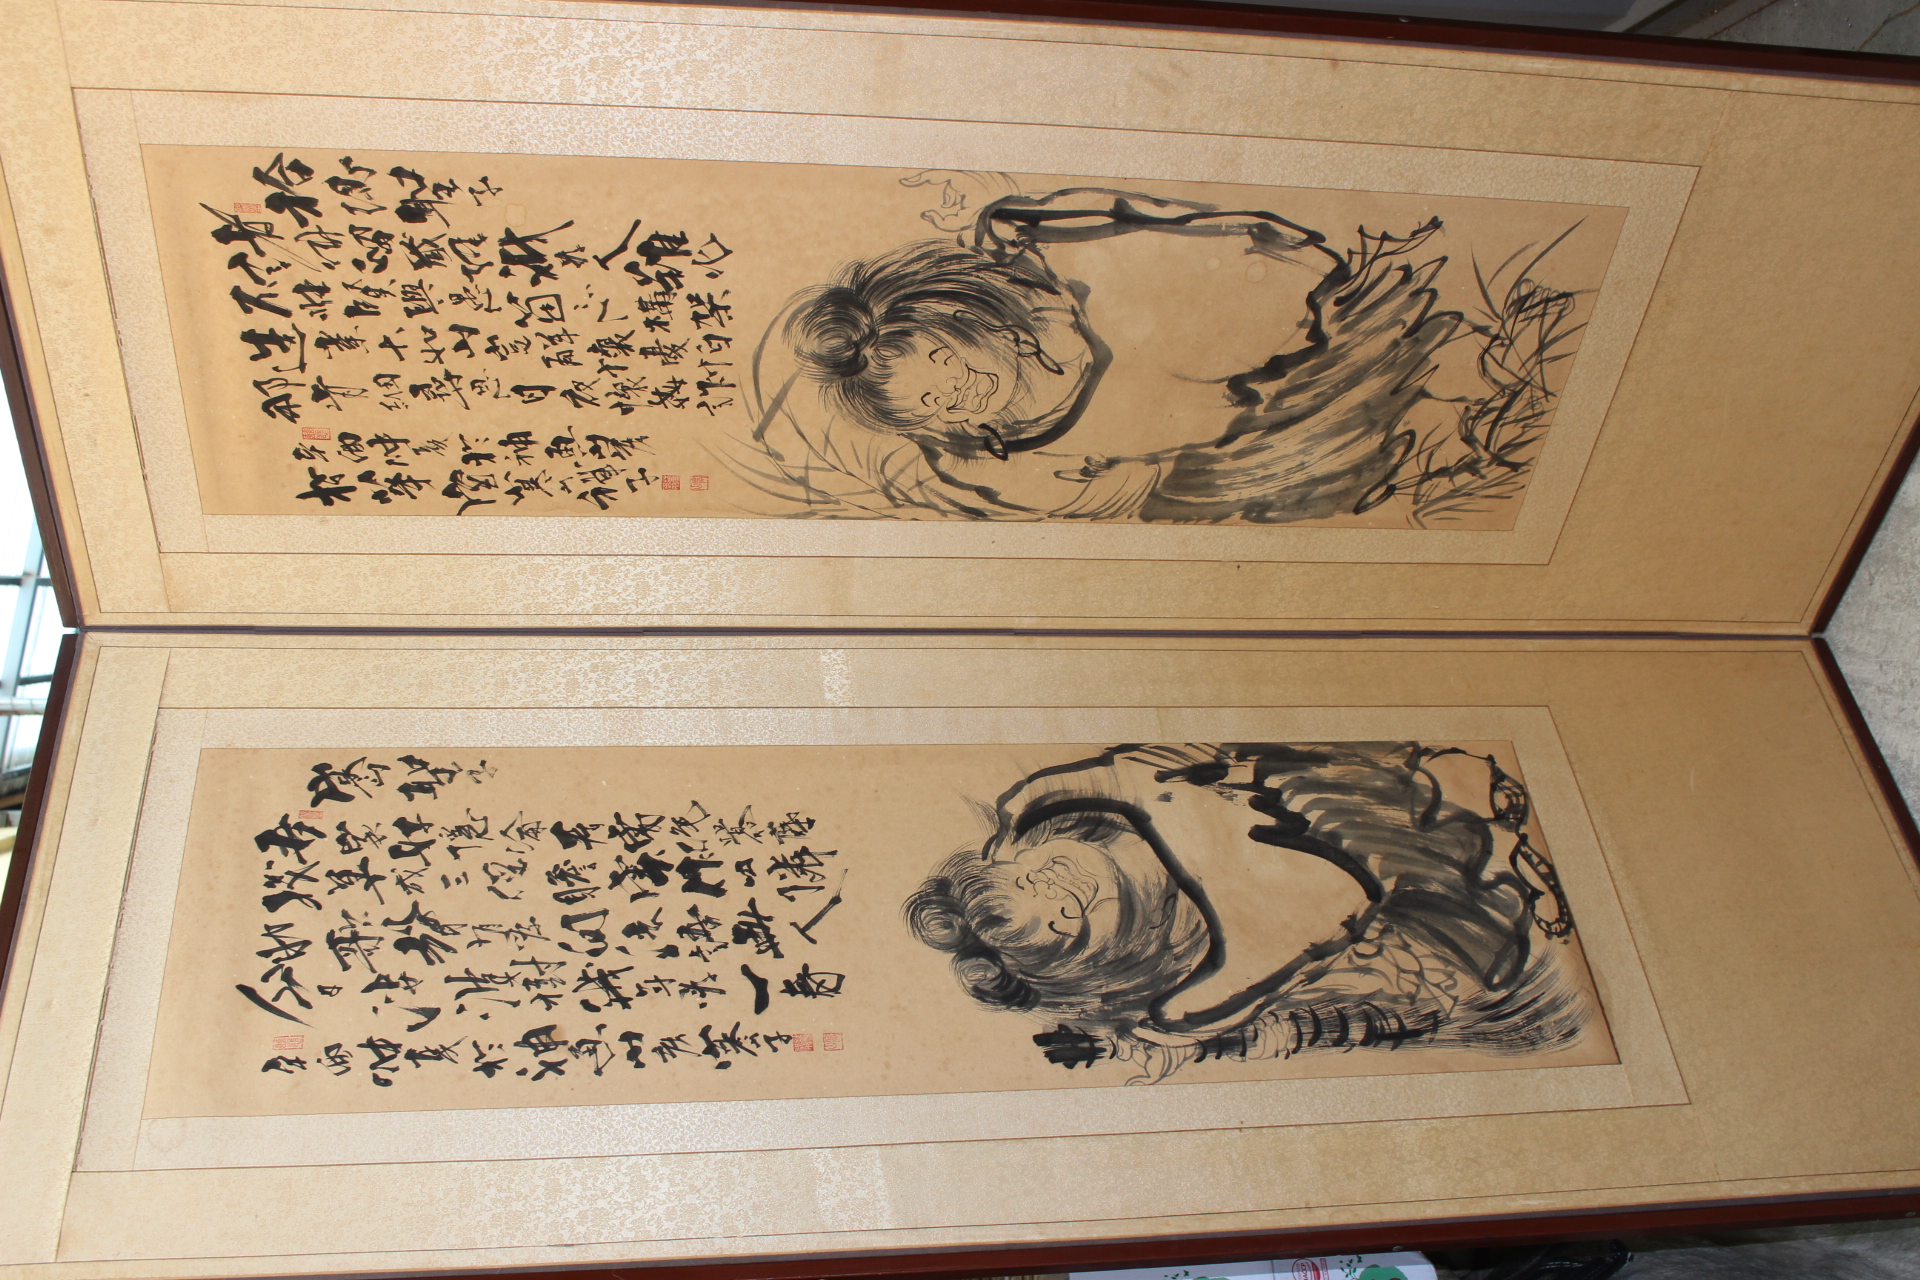 拾得聖子
諸佛留藏經祇為人難化
不唯賢與愚箇々心構架
造業大如山豈解懷憂怕
那肯細尋思日夜懷奸詐
辛酉仲夏於神魚山房
寒山子
寒山聖子
吾家好隱淪居處絕囂塵
踐草成三徑瞻雲作四隣
助歌聲有鳥問法語無人
今日娑婆樹幾年為一春
辛酉仲夏於神魚山房寒山子
HACCP